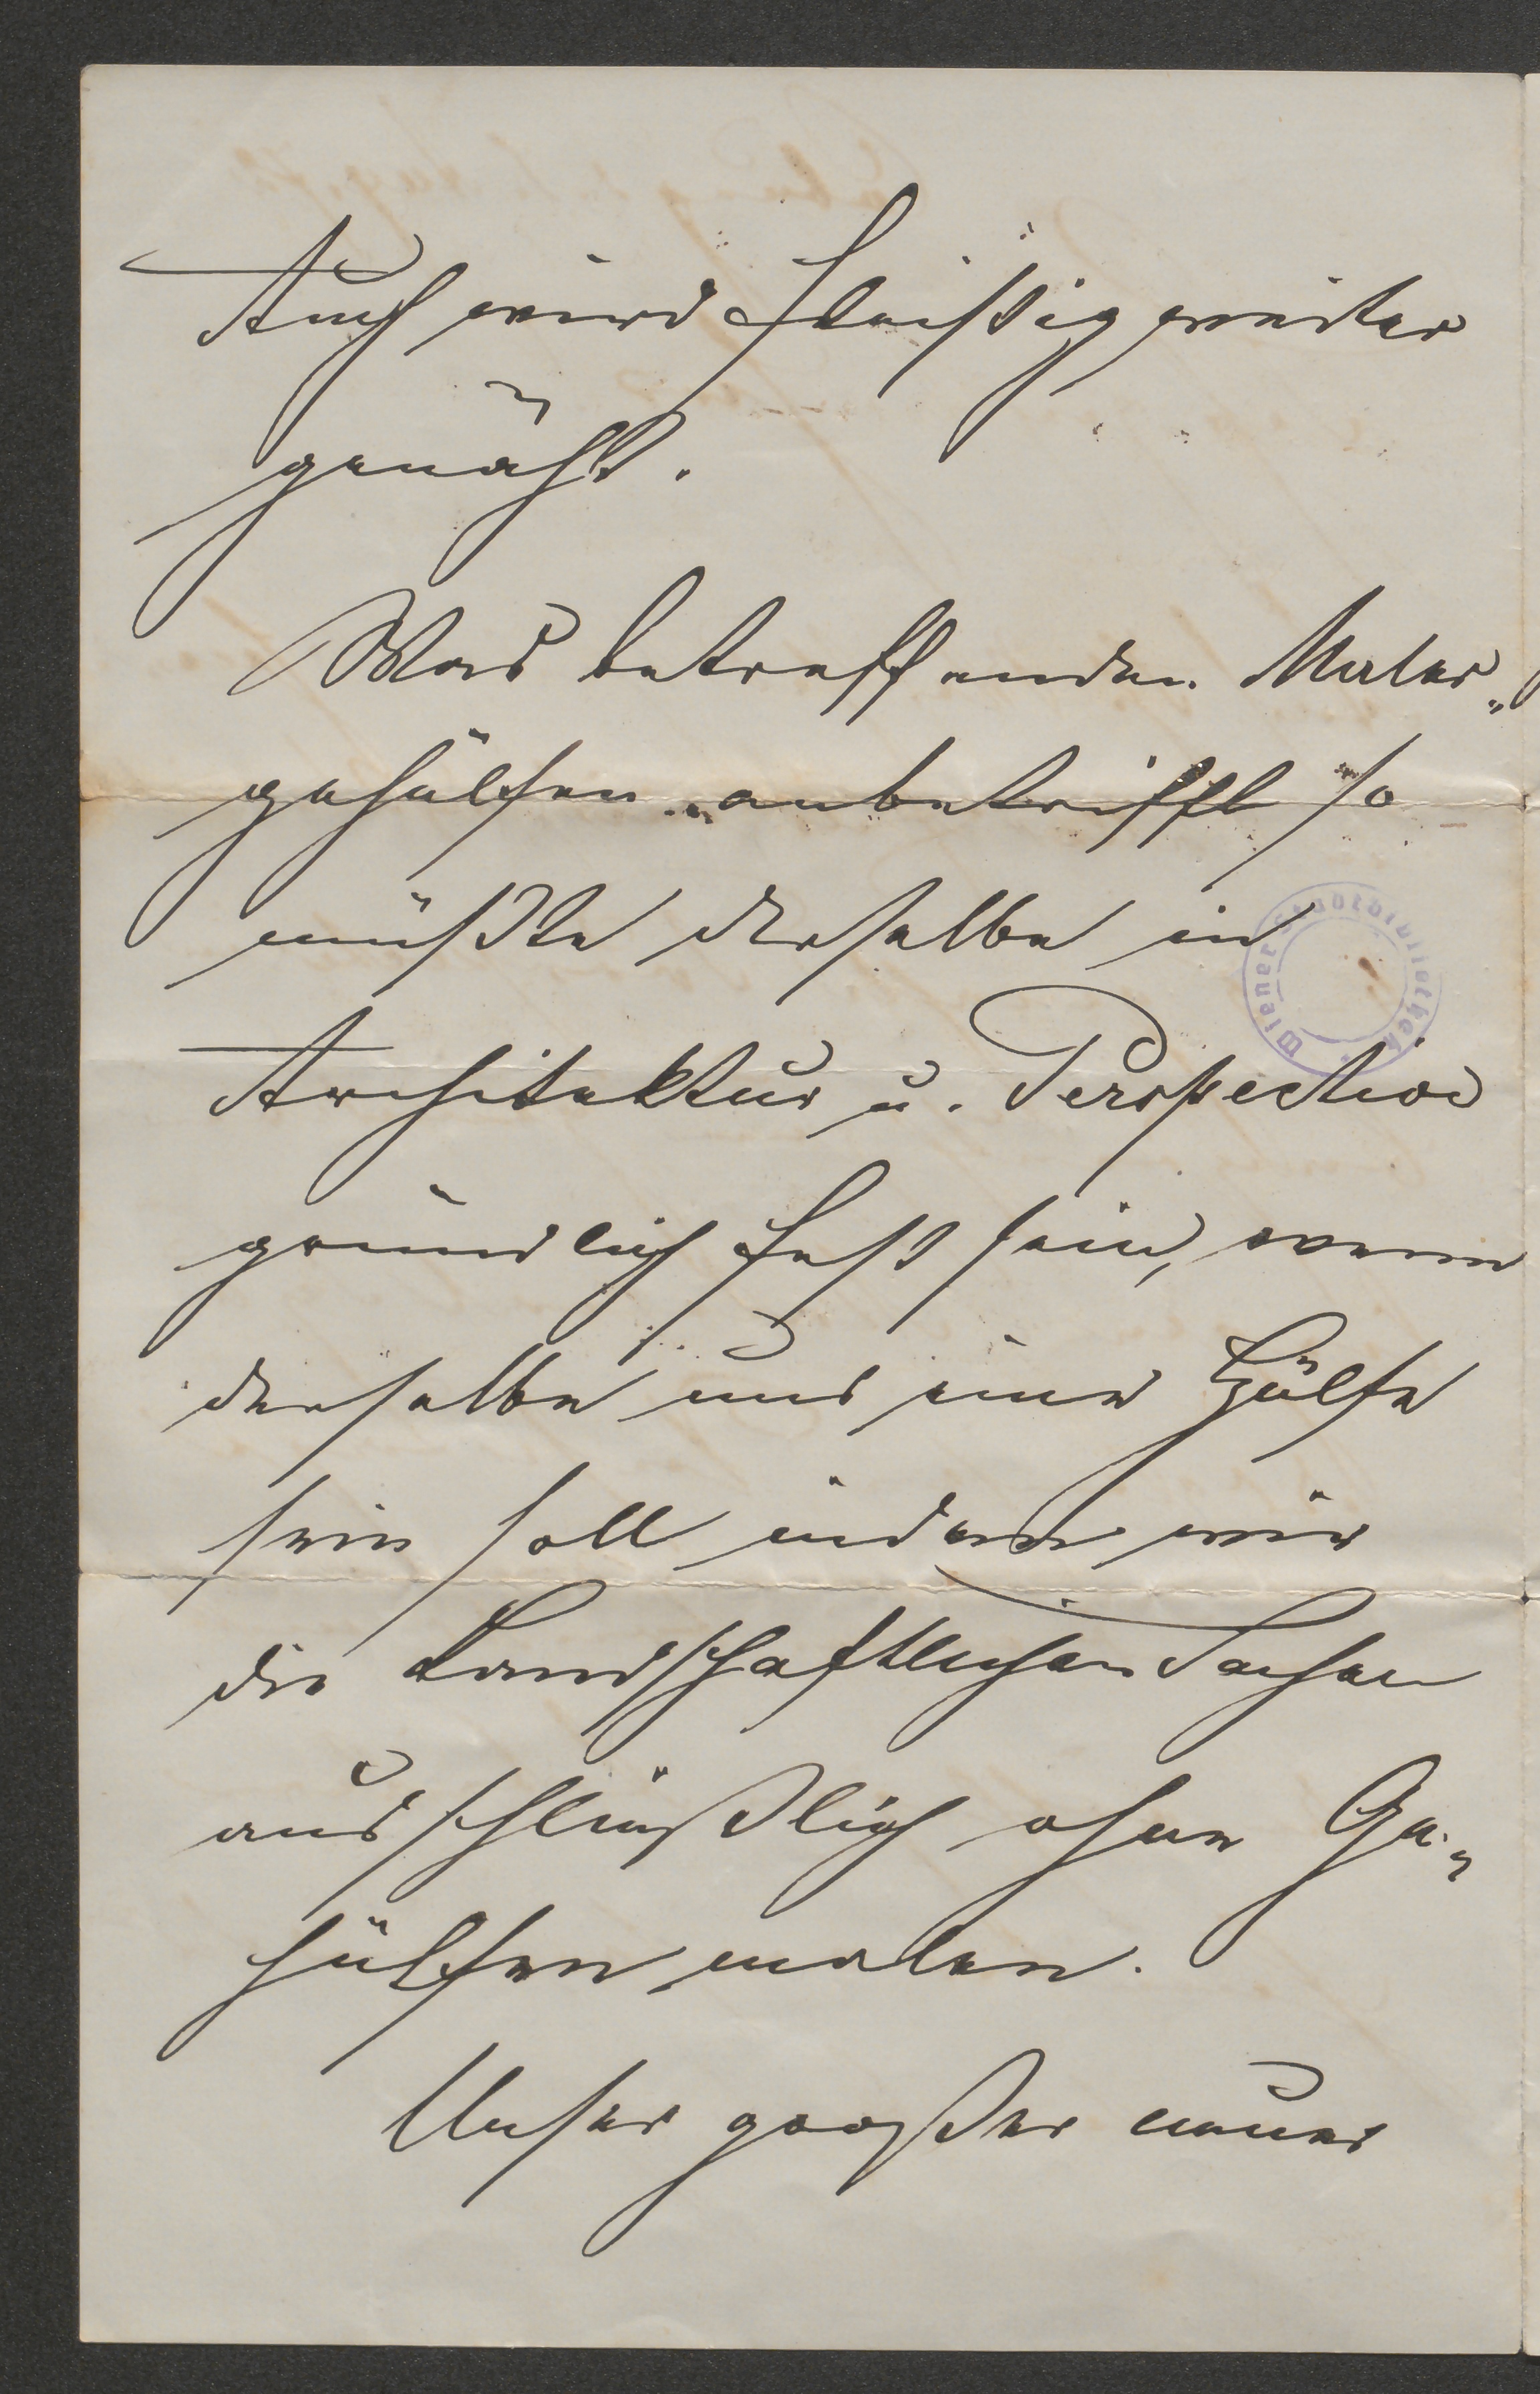 Auch wird fleißig weiter
genäht.
Was betreffenden Maler„
gehülfen anbetrifft so
müßte derselbe in
Architektur u. Perspectiv
gründlich fest sein, wenn
derselbe uns eine Hülfe
sein soll indem wir
die Landschaftlichen Sachen
ausschließlich ohne Ge„
hülfen malen.
Unser großer neuer
Wiener Stadtbibliothek